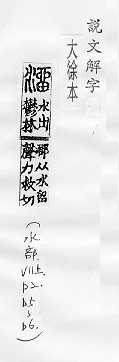 說文解字
大徐本
溜 水出鬱林郡从水畱聲力救切
(水部.
VII上.
p2.
b5
b6.)